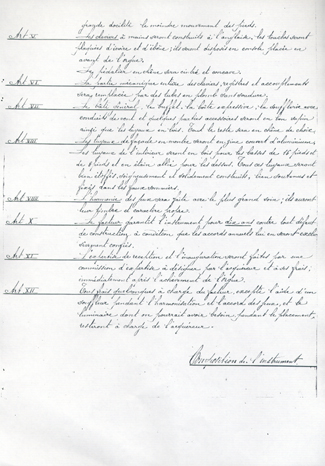 grande docilité le moindre mouvement des pieds.
Art V. Les claviers, à mains seront construits à l'anglaise, les touches seront
plaquées d'ivoire et d'ébène; ils seront disposés en console placée en
avant de l'orgue.
Le pédalier en chêne sera
Art VI. La partie mécanique entière, des claviers, registres et accouplements
sera remplacée par des tubes en plomb sans soudure.
Art VII. Le bâti général, le buffet, la boîte expressive, la soufflerie avec
conduits de vent et quelques parties accessoires seront en bon sapin
ainsi que les tuyaux en bois. Tout le reste sera en chêne de choix.
Art VIII. Les tuyaux de façade en montre seront en zinc, couvert d'aluminium,
les tuyaux de l'intérieur seront en bois pour les basses de 16 pieds et
de 8 pieds et en étain allié pour les dessus. Tous ces tuyaux seront
bien étoffés, soigneusement et solidement construits, bien soutenus et
fixés dans les faux sommiers.
Art VIIII. L'harmonie des jeux sera faite avec le plus grand soin; ils auront
leur timbre et caractère propre.
Art X. Le facteur garantit l'instrument pour dix ans contre tout défaut
de construction, à condition que les accords annuels lui en seront
confiés.
Art XI. L'expertise de réception et l'inauguration seront faites par une
commission d'experts à désigner par l'acquéreur et à ses frais;
immédiatement après l'achèvement de l'orgue.
Art XII. Tous frais quelconques à charge du facteur, excepté l'aide d'un
souffleur pendant l'harmonisation et l'accord des jeux, et le
luminaire dont on pourrait avoir besoin pendant le placement,
resteront à charge de l'acquéreur.
Composition de l'instrument